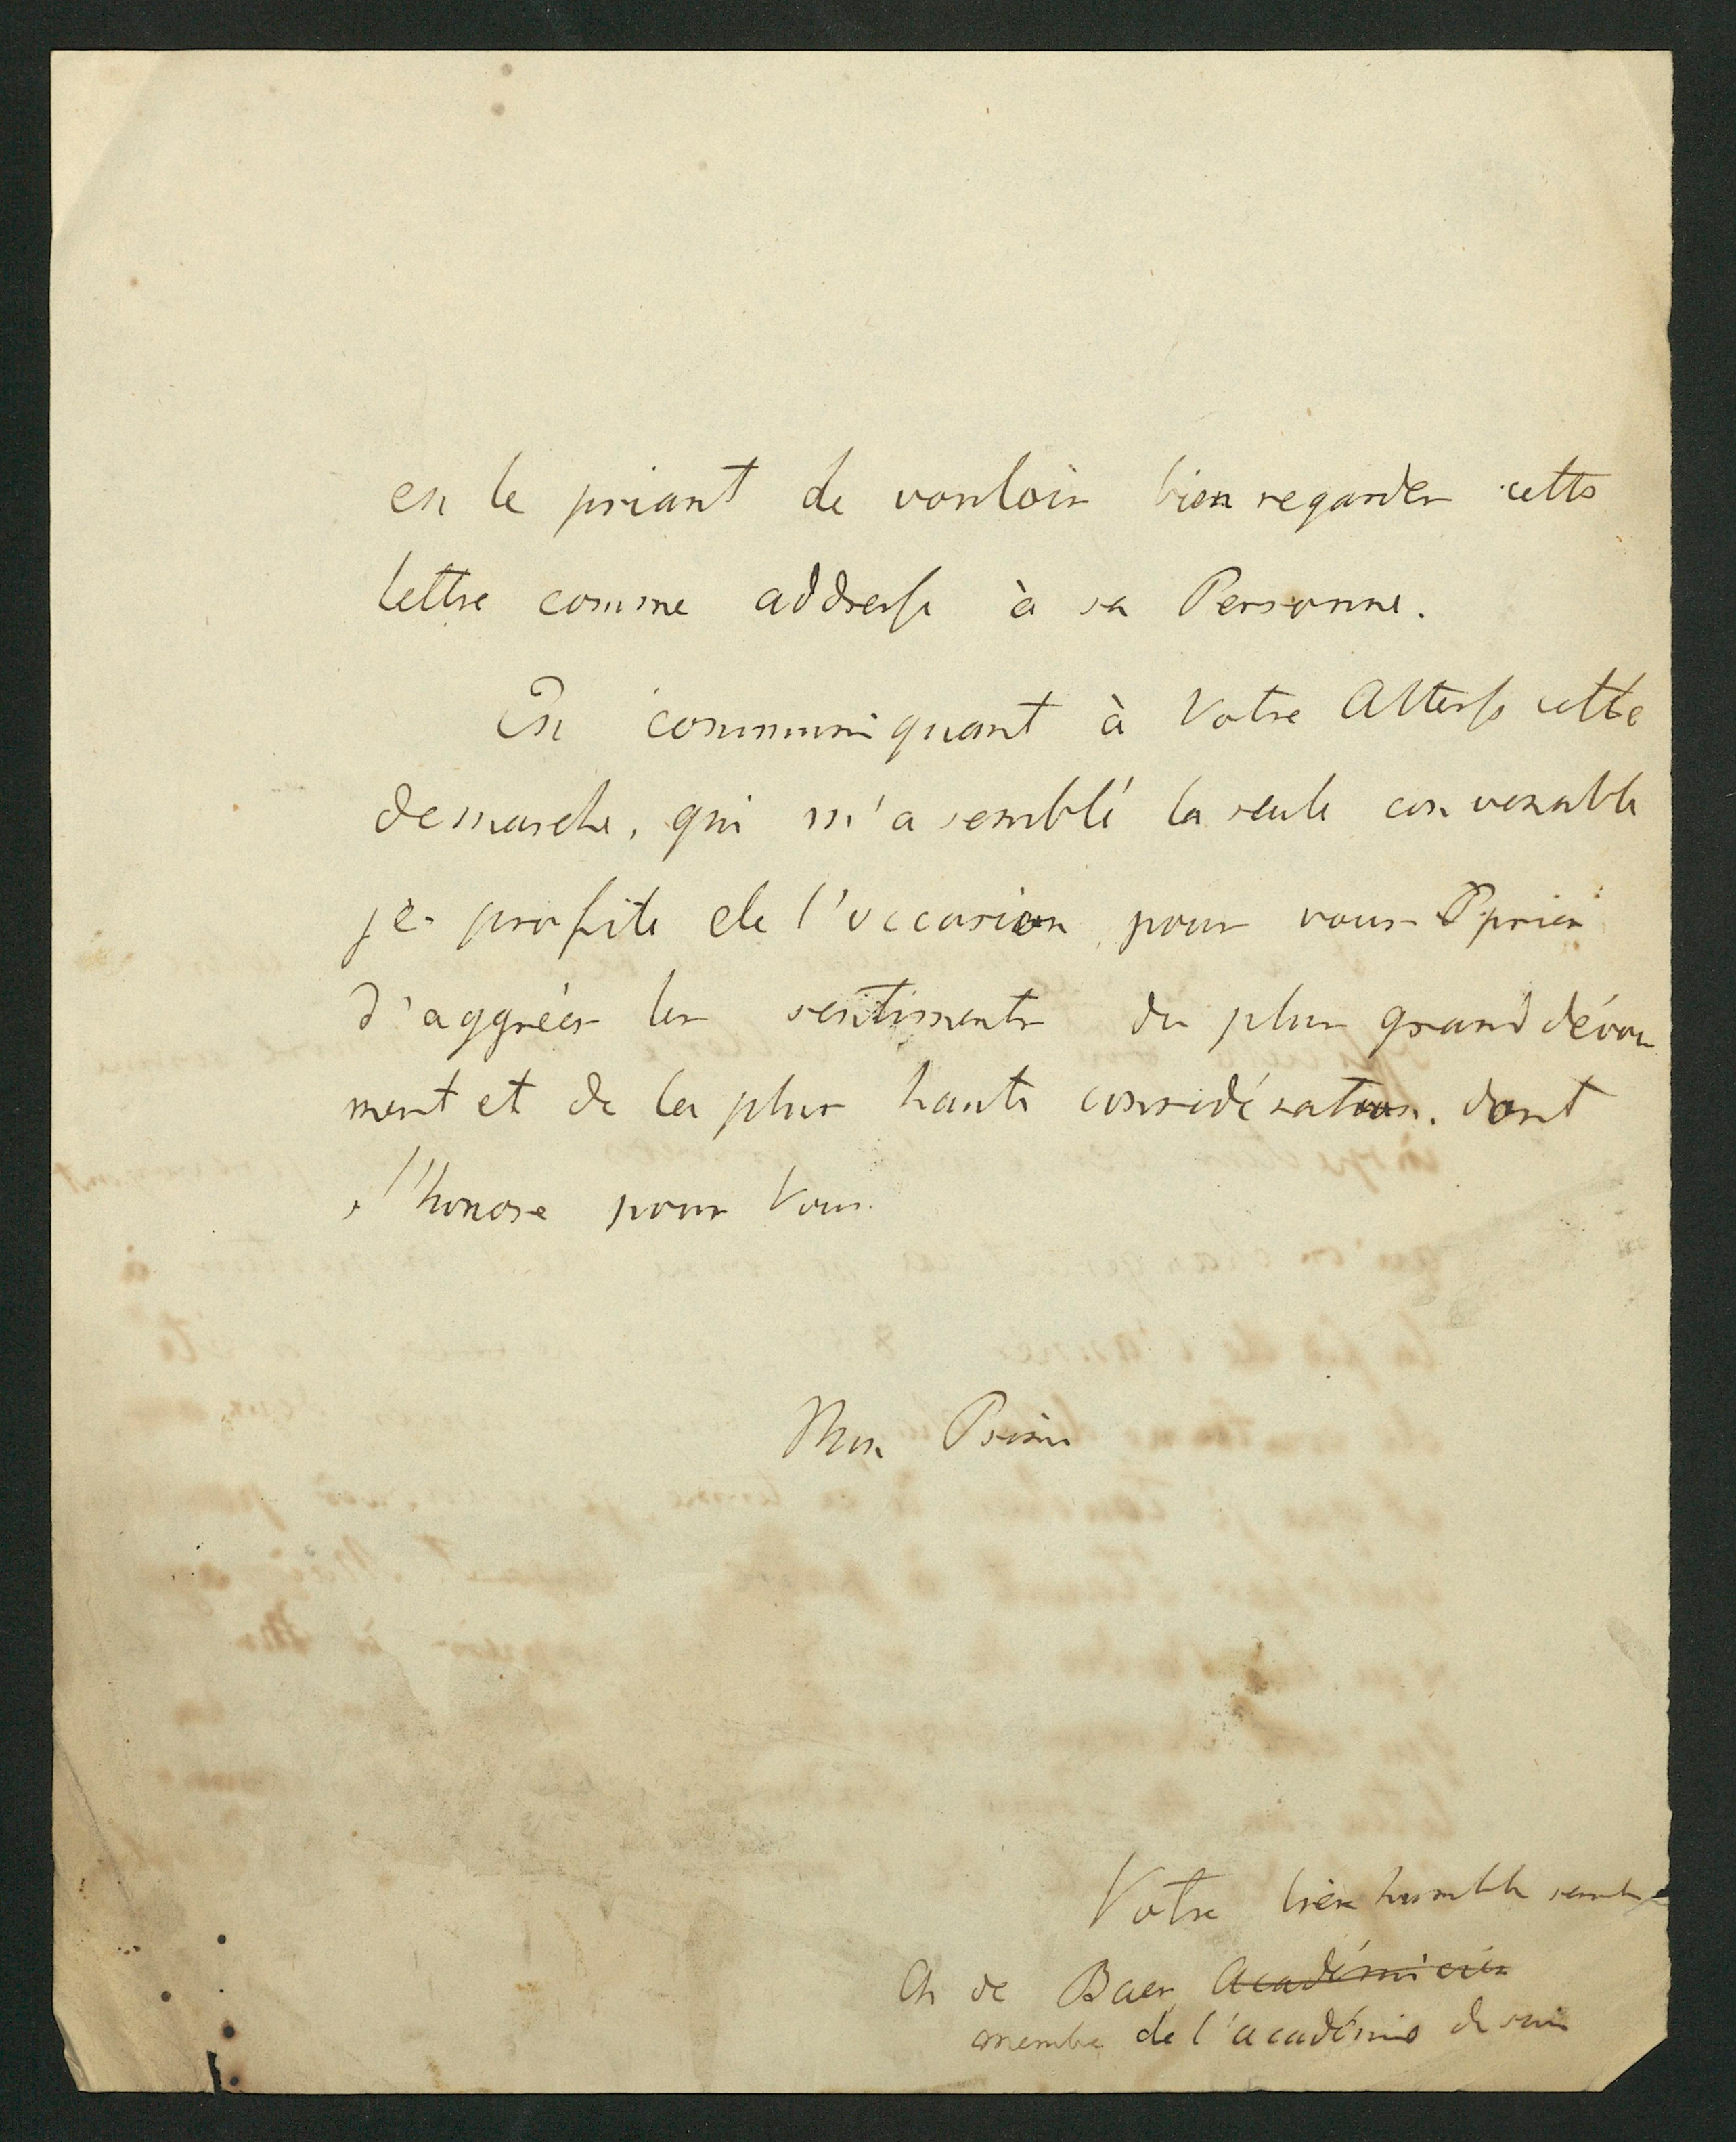 en le priant de vouloir bien regarder cette
lettre comme addresse à sa Personne.
En communiquant à Votre Altesse cette
demarche, qui m'a semblé la seule convenable
je profite de l'occasion pour vous prier
d'aggréer les sentiments du plus grand dévou
ment et de la plus haute considération. dont
j'honore pour Vous.
Mon Prince
Votre bien humble
Ch de Baer Académicien
membre de l'académie de